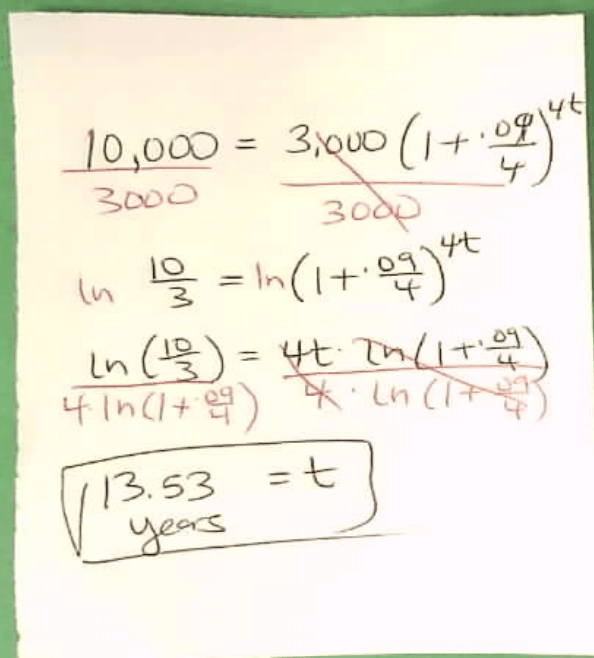 10,000 = 3,000 (1 + .09/4)^4t
3000 3000
ln 10/3 = ln(1 + .09/4)^4t
ln(10/3) = 4t · ln(1 + .09/4)
4·ln(1 + .09/4) 4 · Ln(1 + .09/4)
13.53 = t
years